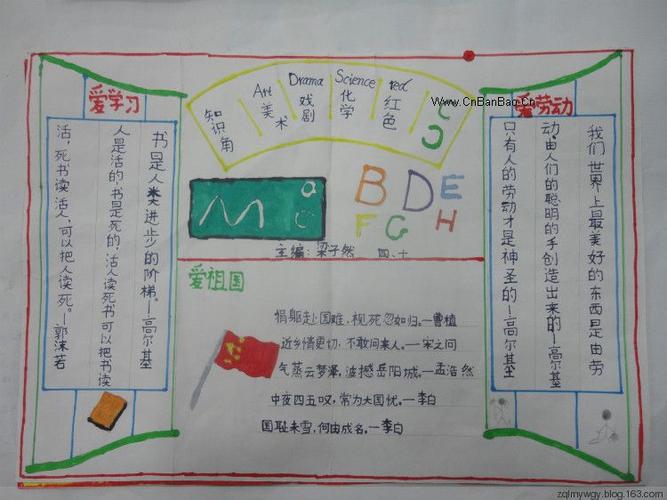 爱学习
书是人类进步的阶梯。—高尔基
人是活的，书是死的，活人读死书可以把书读
活，死书读活人，可以把人读死。—郭沫若
知识角
Art 美术
Drama 戏剧
Science 化学
red 红色
www.CnBanBao.Cn
B D E
F G H
主编：梁子然 四、十
爱祖国
捐躯赴国难，视死忽如归。—曹植
近乡情更切，不敢问来人。—宋之问
气蒸云梦泽，波撼岳阳城。—孟浩然
中夜四五叹，常为大国忧。—李白
国耻未雪，何由成名。—李白
爱劳动
我们世界上最美好的东西是由劳
动，由人们的聪明的手创造出来的—高尔基
只有人的劳动才是神圣的—高尔基
zqlmywgy.blog.163.com